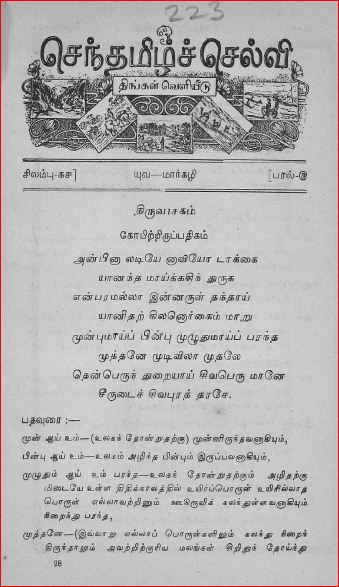 223
செந்தமிழ்ச் செல்வி
திங்கள் வெளியீடு
சிலம்பு-கச] யுவ—மார்கழி [பரல்-ரு
திருவாசகம்
கோயிற்றிருப்பதிகம்
அன்பினா லடியே னாவியோ டாக்கை
யானந்த மாய்க்கசிந் துருக
என்பரமல்லா இன்னருள் தந்தாய்
யானிதற் கிலனொர்கைம் மாறு
முன்புமாய்ப் பின்பு முழுதுமாய்ப் பரந்த
முத்தனே முடிவிலா முதலே
தென்பெருந் துறையாய் சிவபெரு மானே
சீருடைச் சிவபுரத் தரசே.
பதவுரை :—
முன் ஆய் உம்—(உலகத் தோன்றுதற்கு) முன்னிருந்தவனாகியும்,
பின்பு ஆய் உம்—உலகம் அழிந்த பின்பும் இருப்பவனாகியும்,
முழுதும் ஆய் உம் பரந்த—உலகத் தோன்றுதற்கும் அழிதற்கு
மிடையே உள்ள நிதிக்காலத்தில் உயிர்ப்பொருள் உயிரில்லாத
பொருள் எல்லாவற்றினும் ஊடுருவிக் கலந்துள்ளவனாகியும்
நிறைந்து பரந்த,
முத்தனே—(இவ்வாறு எல்லாப் பொருள்களிலும் கலந்து நிறைந்
திருந்தாலும் அவற்றிற்குரிய மலங்கள் சிறிதுந் தோய்ந்து
28